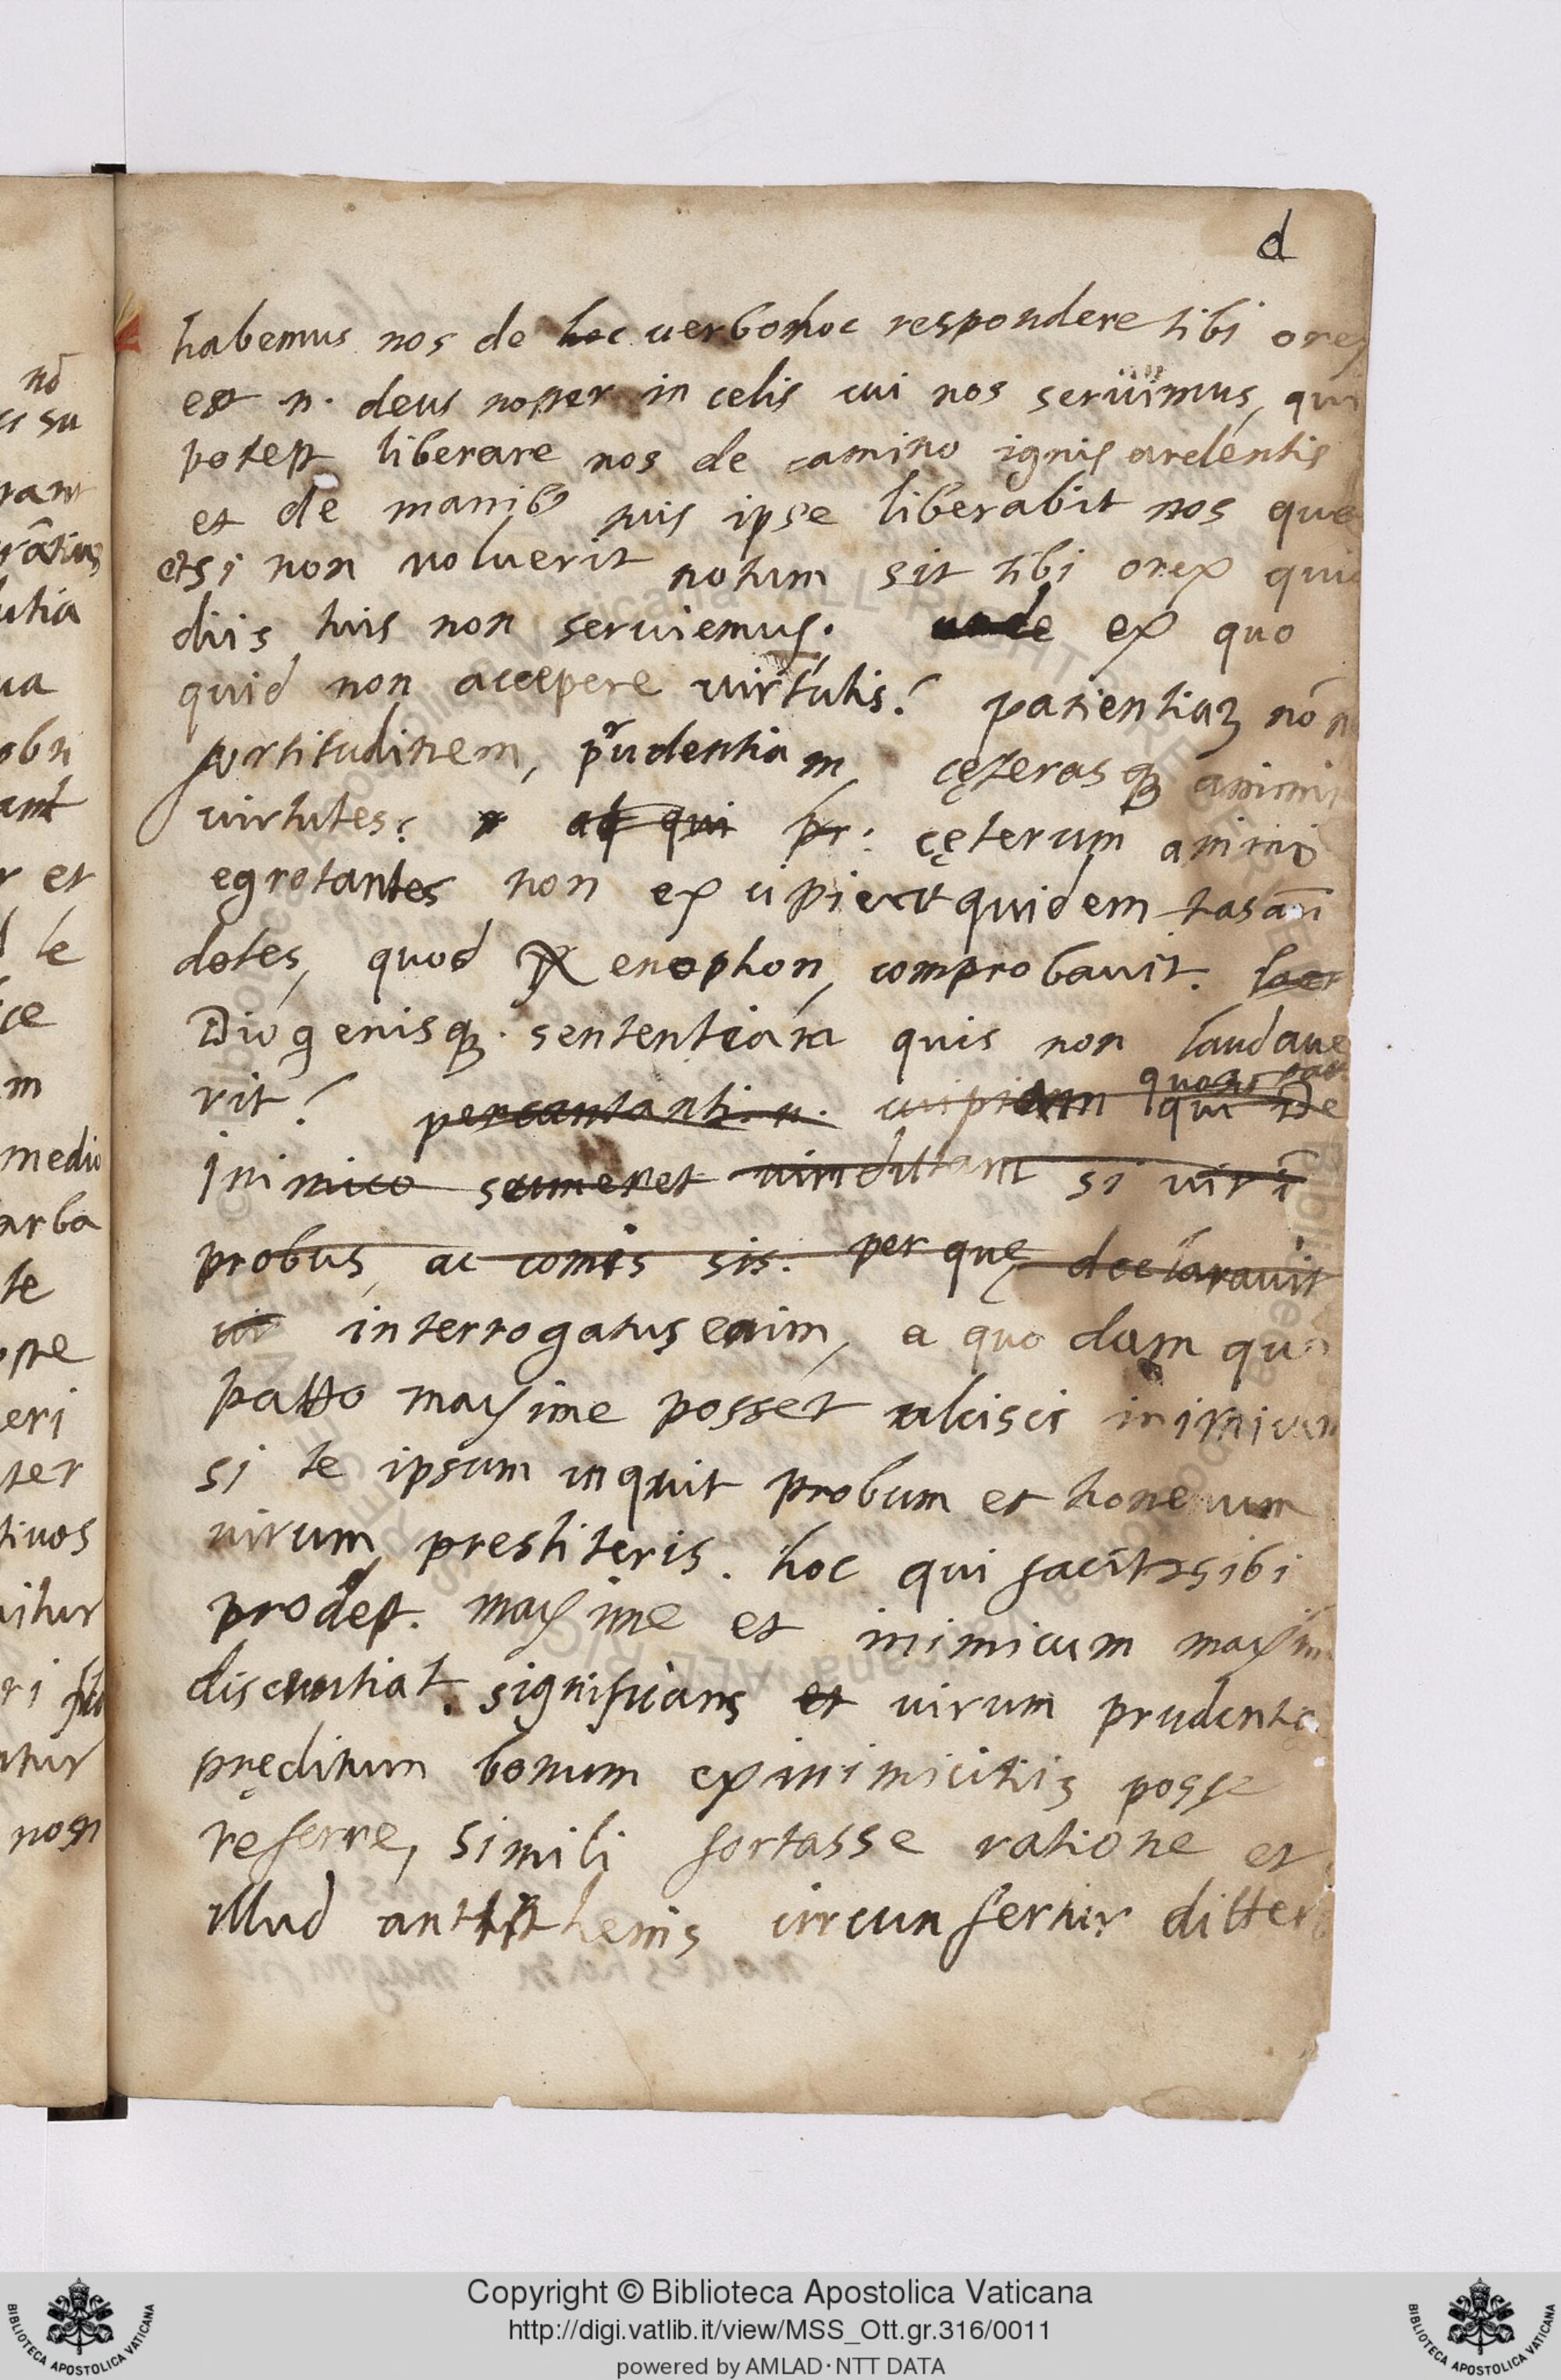 d
habemus nos de hoc uerbo hoc respondere tibi orex
est n. deus noster in celis cui nos seruimus, qui
potest liberare nos de camino ignis ardentis
et de manib9 tuis ipse liberabit nos que
etsi non noluerit notum sit tibi orex quia
diis tuis non seruiemus. unde ex quo
quid non accepere uirtutis? patientiaꝫ nõ
fortitudinem, prudentiam, cęterasqꝫ animi
uirtutes? at qui pr: cęterum animo
egrotantes non excipiunt quidem tas aĩ
dotes, quod Xenophon, comprobauit. laer
Diogenisqꝫ sententiam quis non laudaue
rit? percantanti. n. cuipiam qui De
quo pac
inimico sumeret uindittam si uir ĩ
probus, ac comis sis. per quę declarauit
ut interrogatus enim, a quo dam quo
patto maxime posset ulcisci inimicum
si te ipsum inquit probum et honestum
uirum prestiteris. hoc qui facit sibi
prodest. maxime et inimicum maxim
discrutiat. significans et uirum prudentę
pręditum bonum ex inimicitiis posse
referre, simili fortasse ratione et
illud antisthenis circunfertur ditter
nõ
et
le
ce
m
medio
arba
te
eri
ter
tiuos
non
Copyright © Biblioteca Apostolica Vaticana
http://digi.vatlib.it/view/MSS_Ott.gr.316/0011
powered by AMLAD·NTT DATA
BIBLIOTECA APOSTOLICA VATICANA
BIBLIOTECA APOSTOLICA VATICANA